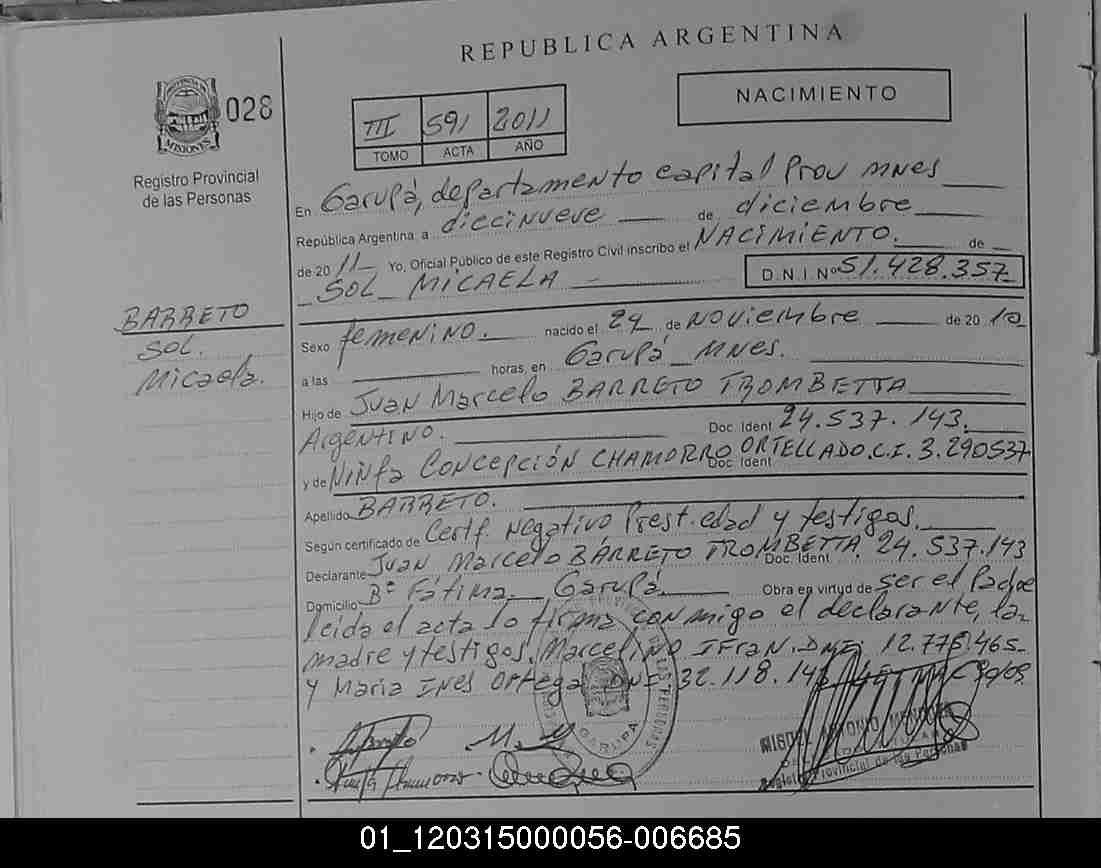 REPUBLICA ARGENTINA
PROVINCIA DE MISIONES
028
Registro Provincial
de las Personas
III 591 2011
TOMO ACTA AÑO
NACIMIENTO
En Garupá, departamento capital Prov MNES
República Argentina a diecinueve de diciembre
de 2011 Yo, Oficial Público de este Registro Civil inscribo el NACIMIENTO. de
SOL MICAELA D.N.I Nº 51.428.357
BARRETO
SOL.
Micaela.
Sexo femenino. nacido el 24 de NOVIEMBRE de 20 10
a las horas, en Garupá MNES.
Hijo de Juan Marcelo BARRETO TROMBETTA
Argentino. Doc. Ident 24.537.143.
y de NINfa CONCEPCIÓN CHAMORRO ORTELLADO. Doc. Ident C.I. 3.290537
Apellido BARRETO.
Según certificado de Certf. Negativo Prest. edad y testigos.
Declarante Juan Marcelo BARRETO TROMBETTA Doc. Ident 24.537.143
Domicilio Bº Fátima Garupá Obra en virtud de ser el Padre
leida el acta lo firma conmigo el declarante, la
madre y testigos. Marcelino IFRAN. DNI: 12.778.465
y Maria INES Ortega DNI 32.118.
GARUPA
LAS PERSONAS
MIGUEL ANTONIO
Registro Provincial de las Personas
01_120315000056-006685